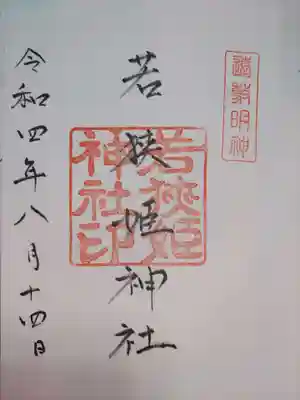 遠敷明神
若狭姫神社
若狭姫
神社印
令和四年八月十四日